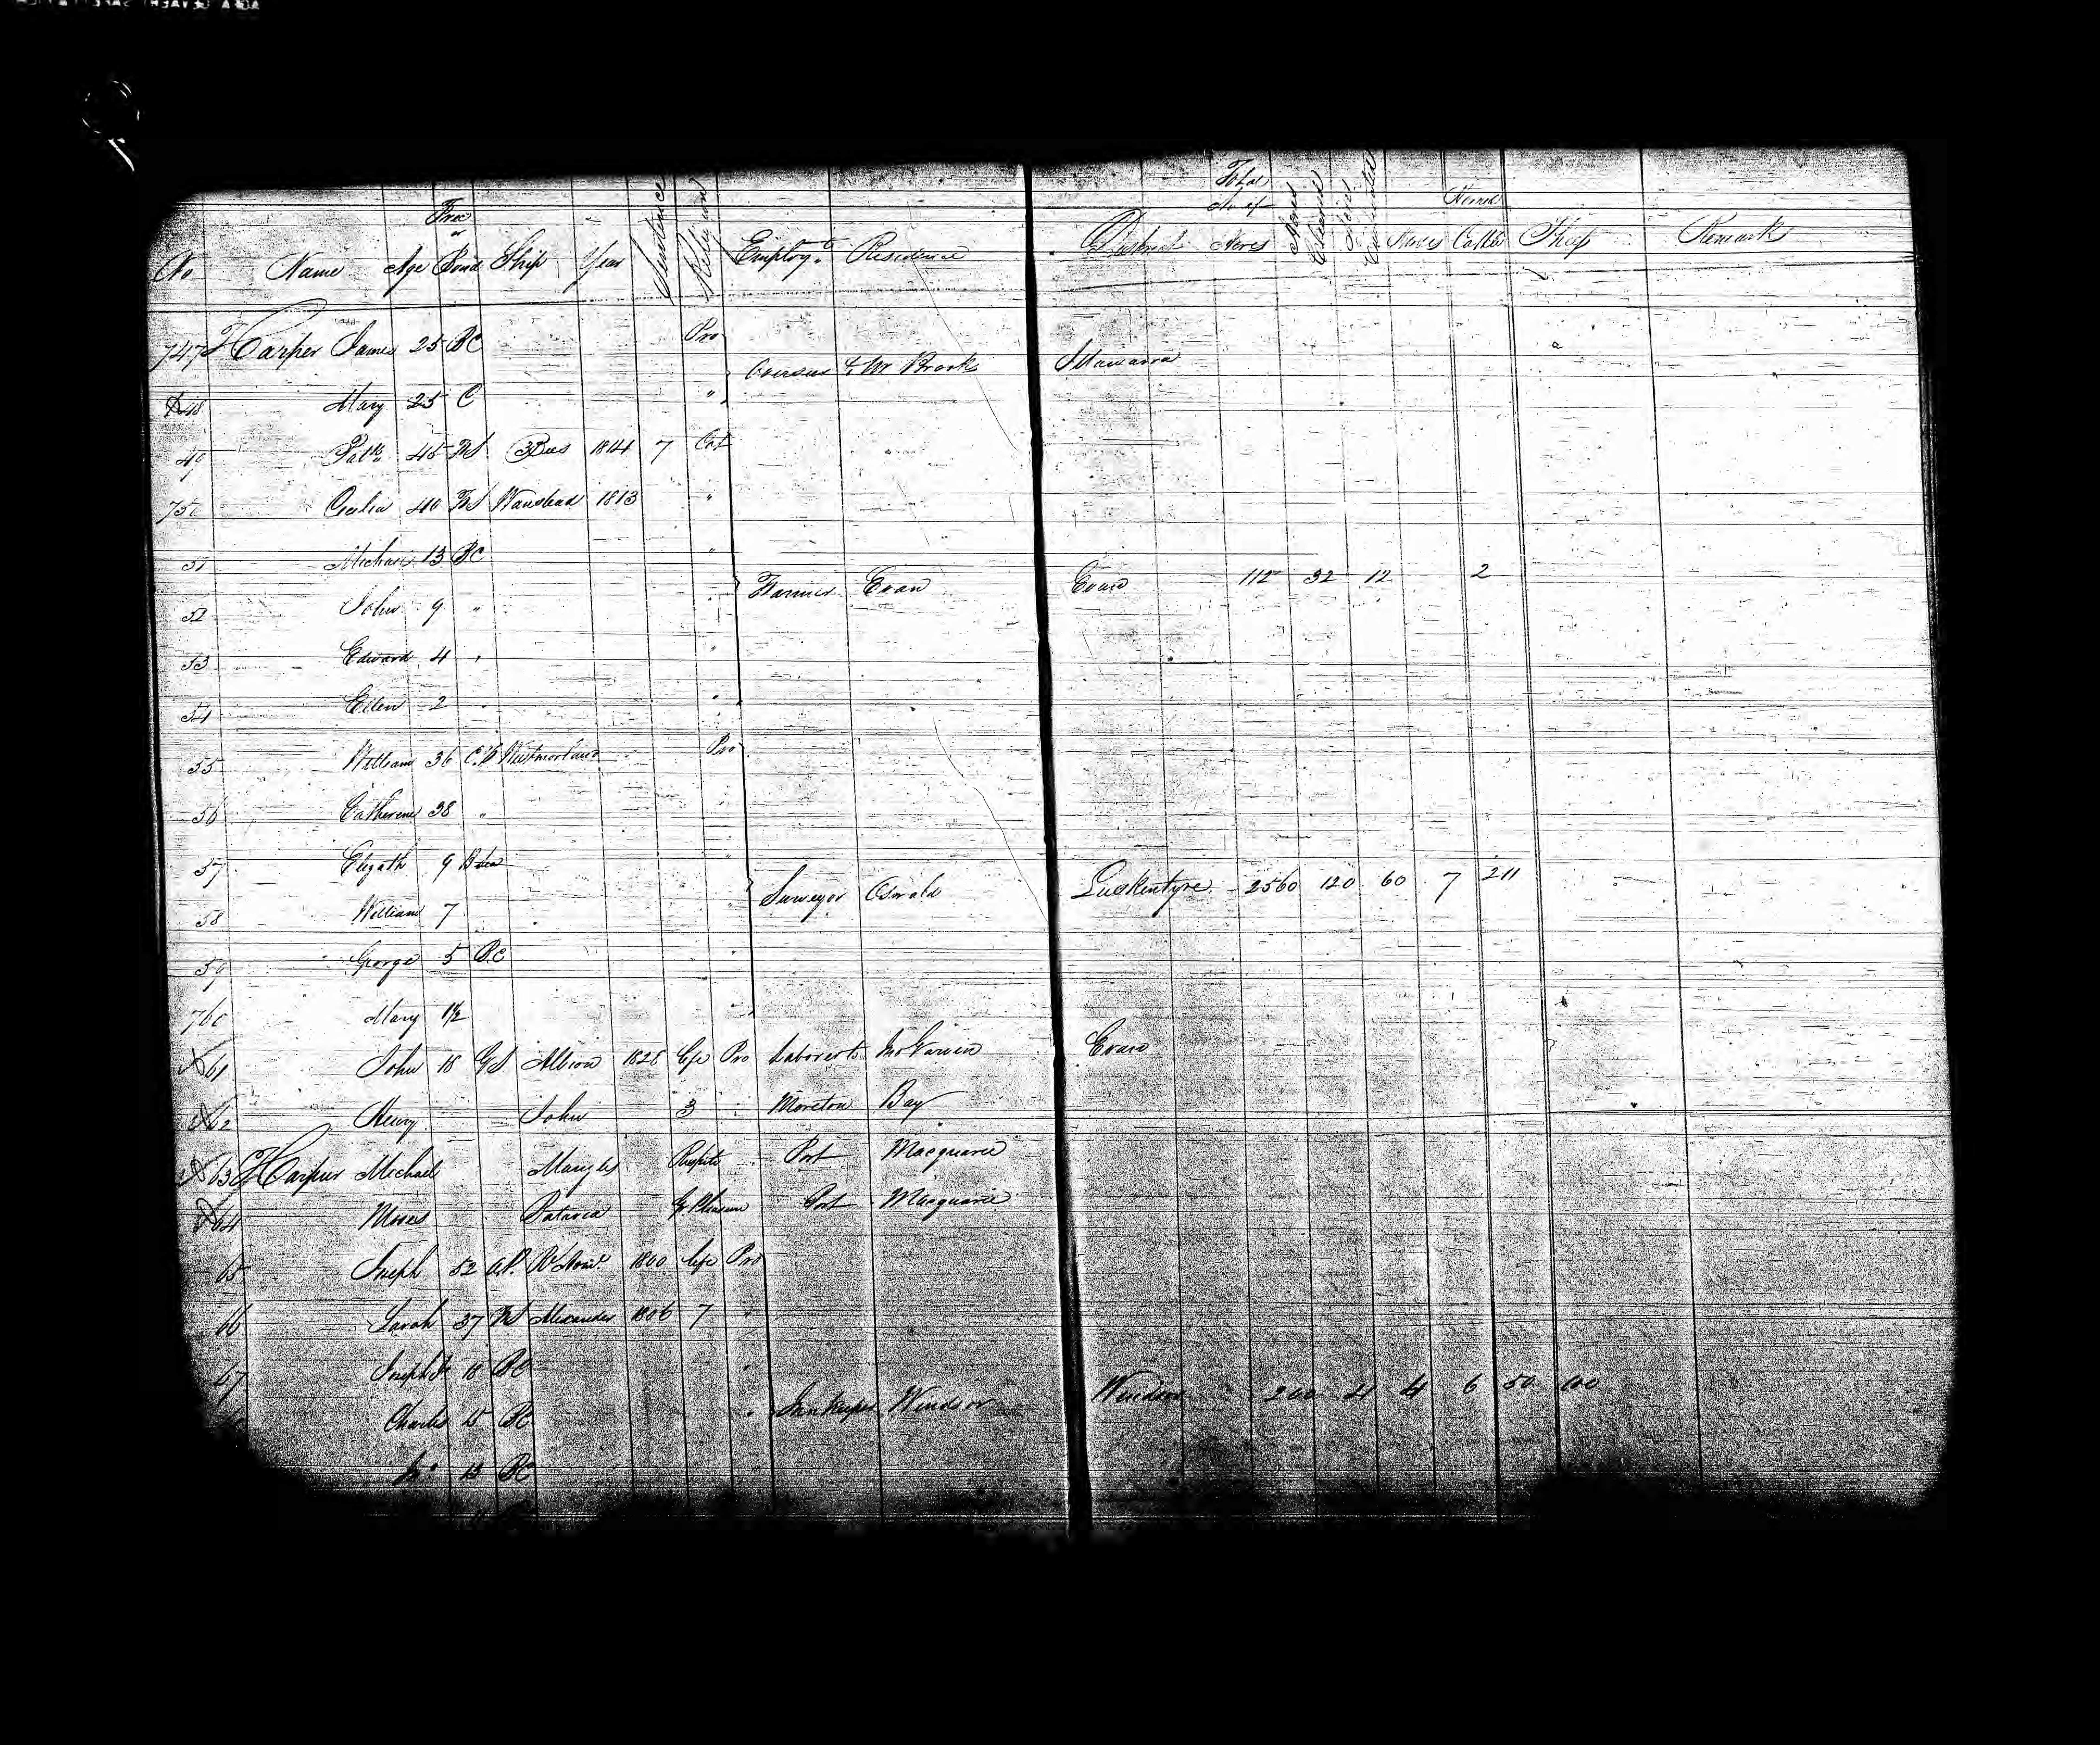 No Name Age Free or Bond Ship Year Sentence Religion Employt. Residence District Total No of Acres Acres Cleared Acres Cultivated Horses Horned Cattle Sheep Remarks
747 Harper James 25 BC Pro
Overseer to Mr Brooks Illawarra
48 Mary 25 C "
49 Patk. 45 FS 3 Bees 1814 7 Cat
750 Celia 40 FS Wanstead 1813 "
51 Michael 13 BC "
Farmer Evan Evan 112 32 12 2
52 John 9 " "
53 Edward 4 " "
54 Ellen 2 "
55 William 36 C.F Westmorland Pro
56 Catherine 38 "
57 Elizath 9 "
Surveyor Oswald Luskintyre 2560 120 60 7 211
58 William 7 "
59 George 5 B.C "
760 Mary 1½ "
61 John 18 GS Albion 1828 Life Pro Laborer to Evan
62 Henry John 3 Moreton Bay
63 Harper Michael Mangles Respite Port Macquarie
64 Moses Batavia G. Pleasure Port Macquarie
65 Joseph 52 1800 Life Pro
66 Sarah 37 FS Alexander 1806 7 "
67 Joseph Jr 18 BC "
Innkeeper Windsor Windsor 200 4 4 6 50 100
Charles 15 BC "
Jno 13 BC